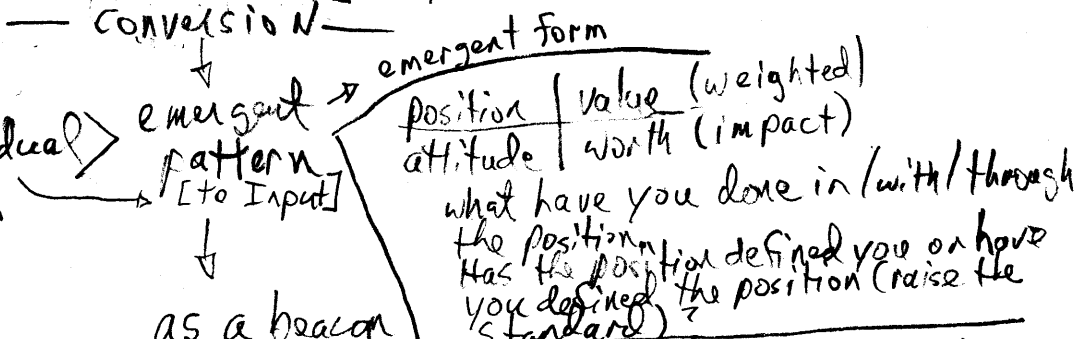 — CONVERSION —
emergent form
dual > emergent
pattern
[to Input]
as a beacon
position | value (weighted)
attitude | worth (impact)
what have you done in/with/through
the position.
Has the position defined you or have
you defined the position (raise the
standard)?